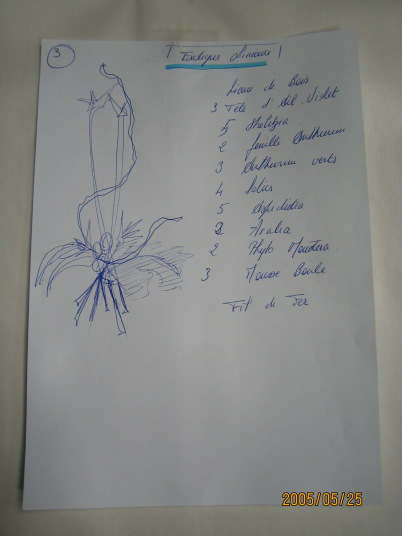 3
Exotique Linéaire
Liane de Bois
3 Tete d'Ail Violet
5 Strelitzia
2 feuille Anthurium
3 Anthurium verts
4 Lotus
5 Aspidistra
2 Aralia
2 Phylo Monstera
3 Mousse Boule
Fil de Fer
2005/05/25